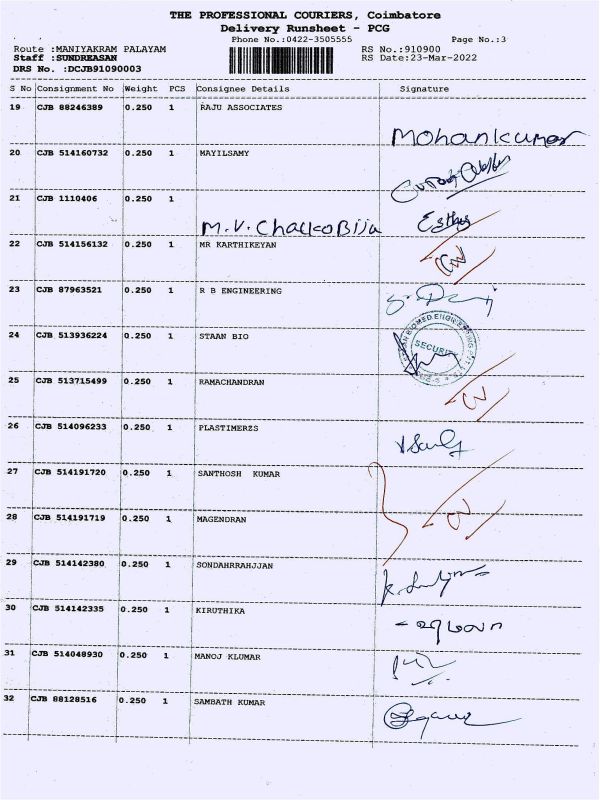 THE PROFESSIONAL COURIERS, Coimbatore
Delivery Runsheet - PCG
Phone No.:0422-3505555 Page No.:3
Route :MANIYAKRAM PALAYAM RS No.:910900
Staff :SUNDREASAN RS Date:23-Mar-2022
DRS No. :DCJB91090003
S No Consignment No Weight PCS Consignee Details Signature
19 CJB 88246389 0.250 1 RAJU ASSOCIATES
Mohankumar
20 CJB 514160732 0.250 1 MAYILSAMY
21 CJB 1110406 0.250 1
M.V. Chacko Bija Esther
22 CJB 514156132 0.250 1 MR KARTHIKEYAN
23 CJB 87963521 0.250 1 R B ENGINEERING
24 CJB 513936224 0.250 1 STAAN BIO
SECURITY
25 CJB 513715499 0.250 1 RAMACHANDRAN
26 CJB 514096233 0.250 1 PLASTIMERZS
27 CJB 514191720 0.250 1 SANTHOSH KUMAR
28 CJB 514191719 0.250 1 MAGENDRAN
29 CJB 514142380 0.250 1 SONDAHRRAHJJAN
30 CJB 514142335 0.250 1 KIRUTHIKA
31 CJB 514048930 0.250 1 MANOJ KLUMAR
32 CJB 88128516 0.250 1 SAMBATH KUMAR